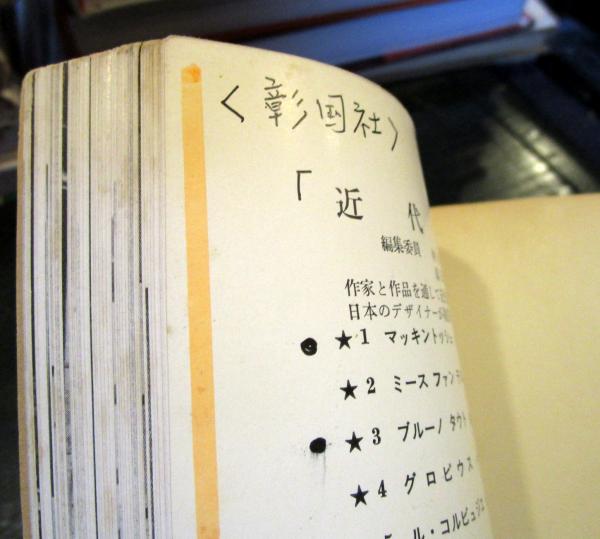 〈彰国社〉
「近代
編集委員
作家と作品を通して
日本のデザイナー
● ★1 マッキントッシュ
★2 ミース ファン デ
● ★3 ブルーノ タウト
★4 グロピウス
5 ル・コルビュジエ